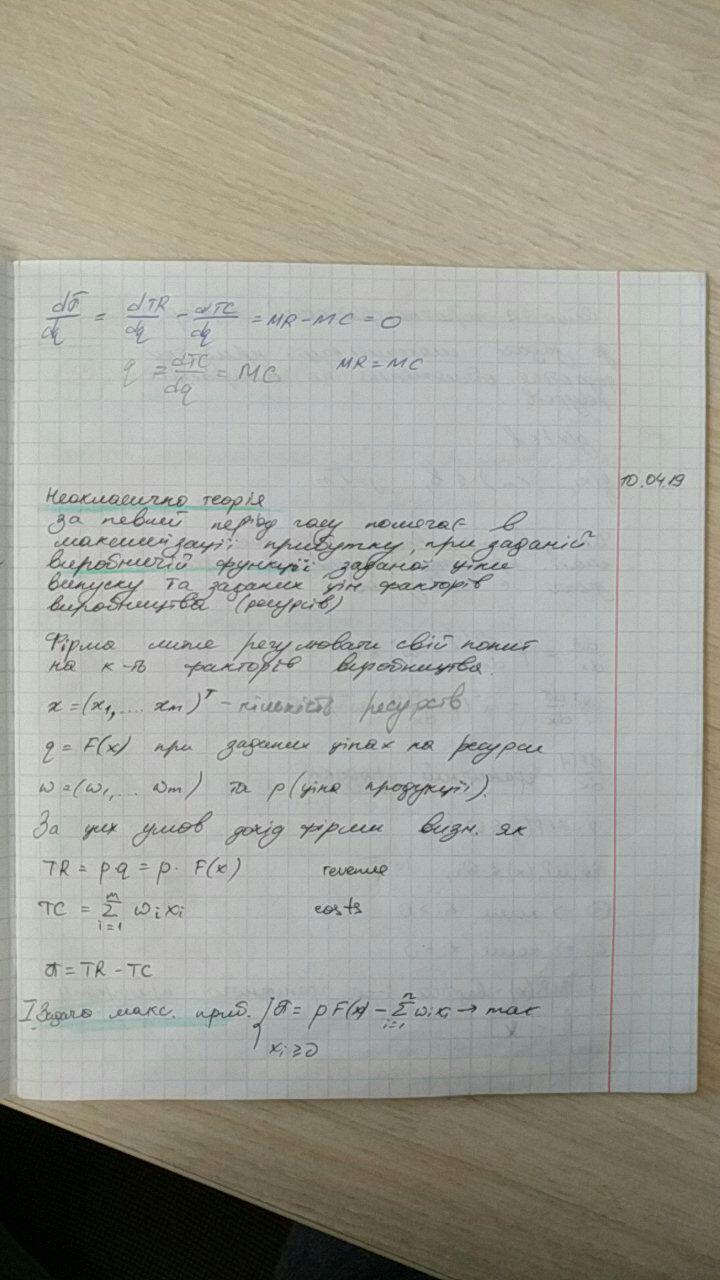 dπ/dq = dTR/dq - dTC/dq = MR - MC = 0
q = dTC/dq = MC MR = MC
10.04.19
Неокласично теорія
за певний період часу помогає в
максимізації прибутку, при заданій
виробничій функції заданої ціни
випуску та заданих цін факторів
виробництва (ресурсів)
Фірма лише регулювати свій попит
на к-ть факторів виробництва.
x = (x₁, ... xm)ᵀ - кількість ресурсів
q = F(x) при заданих цінах на ресурси
w = (w₁, ... wm) та p (ціна продукції).
За цих умов дохід фірми визн. як
TR = p·q = p · F(x) revenue
TC = Σ_{i=1}^{m} wᵢxᵢ costs
π = TR - TC
I Задача макс. приб. { π = pF(x) - Σ_{i=1}^{n} wᵢxᵢ → max
xᵢ ≥ 0